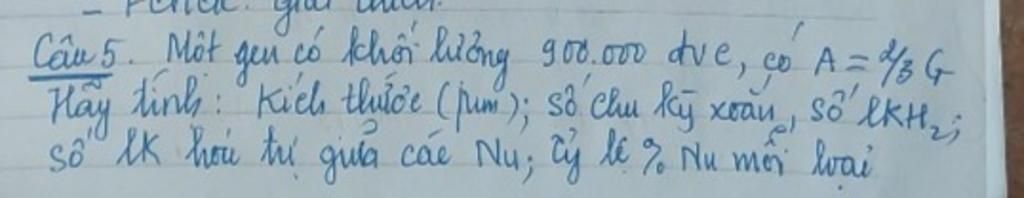 - Pencil: giải thích.
Câu 5. Một gen có khối lượng 900.000 đvc, có A = 2/3 G
Hãy tính: Kích thước (µm); số chu kỳ xoắn, số lKH2;
số lK hoá trị giữa các Nu; Tỷ lệ % Nu mỗi loại